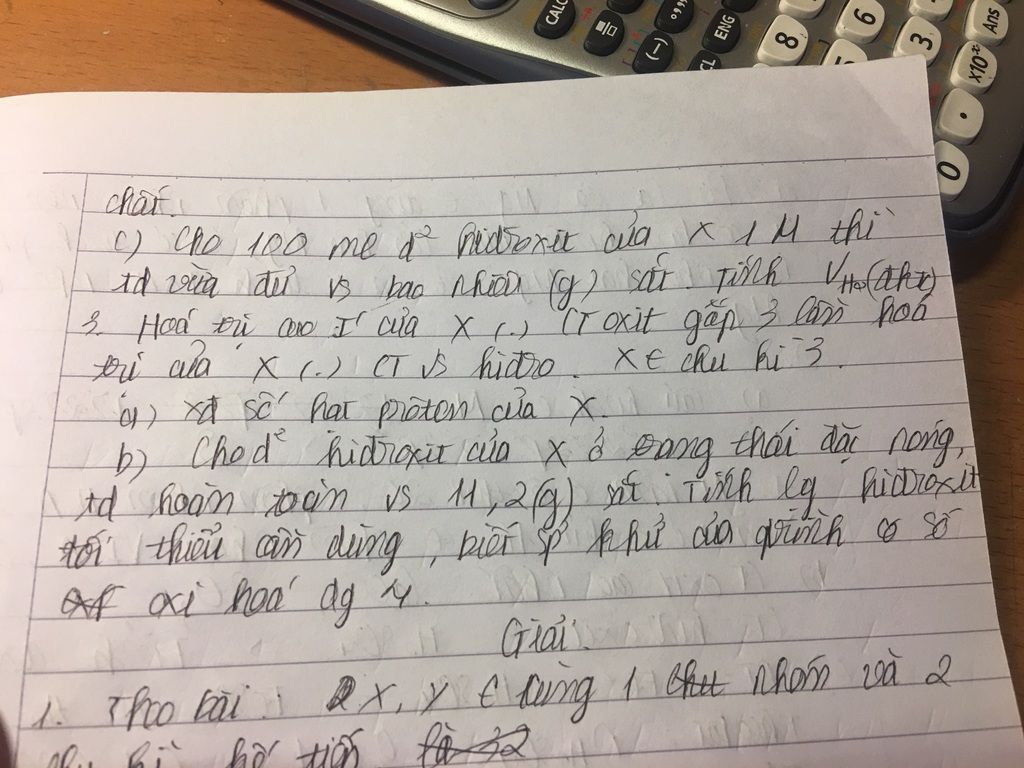 CALC
(-)
ENG
CL
8
6
3
Ans
x10ˣ
.
0
chất.
c) Cho 100 ml d² hiđroxit của X 1 M thì
td vừa đủ vs bao nhiêu (g) sắt. Tính V H₂(đktc)
3. Hoá trị cao I' của X (.) CT oxit gấp 3 lần hoá
trị của X (.) CT vs hidro. X ∈ chu kì 3.
a) xđ số hạt proton của X.
b) Cho d² hiđroxit của X ở trạng thái đặc nóng,
td hoàn toàn vs 11,2(g) sắt. Tính lg hiđroxit
tối thiểu cần dùng, biết sp khử của qtrình có số
oxi hoá dg 4.
Giải.
1. Theo bài: X, Y ∈ cùng 1 nhóm và 2
chu kì kế tiếp